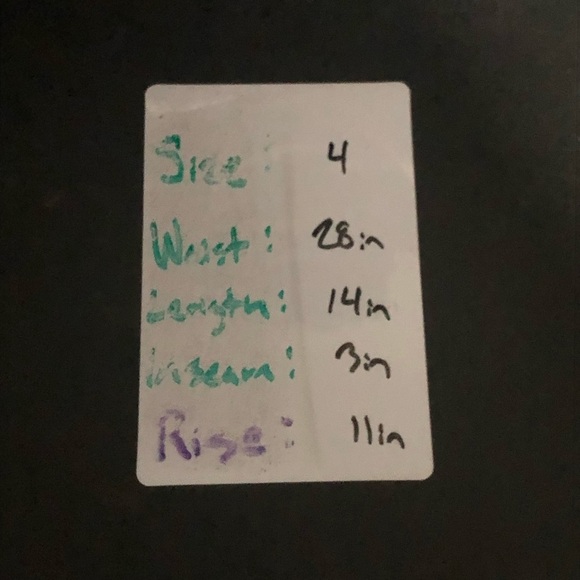 Size: 4
Waist: 28in
Length: 14in
Inseam: 3in
Rise: 11in